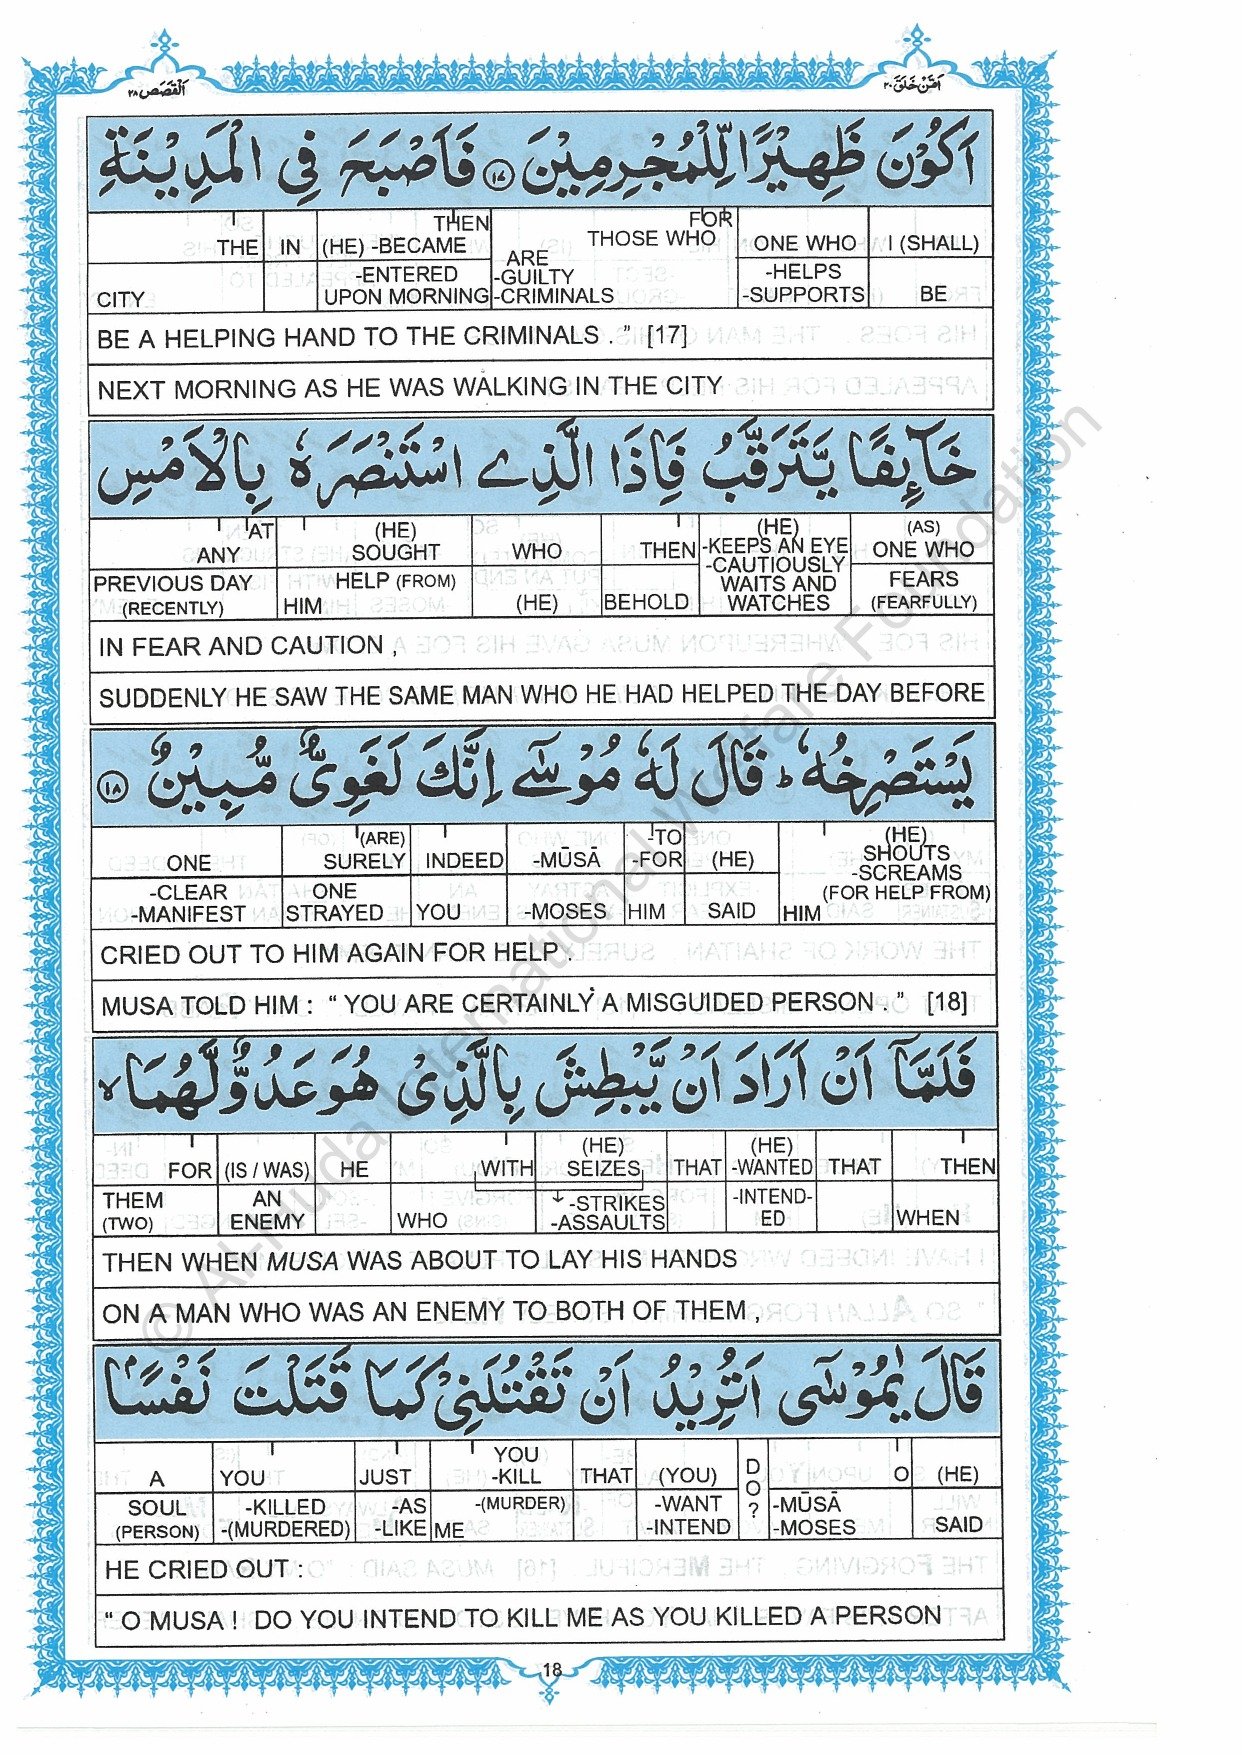 القصص ٢٨
امن خلق ٢٠
اَكُوْنَ ظَهِيْرًا لِّلْمُجْرِمِيْنَ ١٧ فَاَصْبَحَ فِى الْمَدِيْنَةِ
THE IN THEN (HE) -BECAME FOR THOSE WHO ONE WHO I (SHALL)
CITY -ENTERED UPON MORNING ARE -GUILTY -CRIMINALS -HELPS -SUPPORTS BE
BE A HELPING HAND TO THE CRIMINALS . ” [17]
NEXT MORNING AS HE WAS WALKING IN THE CITY
خَآئِفًا يَّتَرَقَّبُ فَاِذَا الَّذِى اسْتَنْصَرَهٗ بِالْاَمْسِ
AT ANY (HE) SOUGHT WHO THEN (HE) -KEEPS AN EYE -CAUTIOUSLY (AS) ONE WHO
PREVIOUS DAY (RECENTLY) HIM HELP (FROM) (HE) BEHOLD WAITS AND WATCHES FEARS (FEARFULLY)
IN FEAR AND CAUTION ,
SUDDENLY HE SAW THE SAME MAN WHO HE HAD HELPED THE DAY BEFORE
يَسْتَصْرِخُهٗ ط قَالَ لَهٗ مُوْسٰٓى اِنَّكَ لَغَوِىٌّ مُّبِيْنٌ ١٨
ONE (ARE) SURELY INDEED -MŪSĀ -TO -FOR (HE) (HE) SHOUTS -SCREAMS
-CLEAR -MANIFEST ONE STRAYED YOU -MOSES HIM SAID HIM (FOR HELP FROM)
CRIED OUT TO HIM AGAIN FOR HELP .
MUSA TOLD HIM : “ YOU ARE CERTAINLY A MISGUIDED PERSON . ” [18]
فَلَمَّآ اَنْ اَرَادَ اَنْ يَّبْطِشَ بِالَّذِىْ هُوَ عَدُوٌّ لَّهُمَا لا
FOR (IS / WAS) HE WITH (HE) SEIZES THAT (HE) -WANTED THAT THEN
THEM (TWO) AN ENEMY WHO -STRIKES -ASSAULTS -INTEND- ED WHEN
THEN WHEN MUSA WAS ABOUT TO LAY HIS HANDS
ON A MAN WHO WAS AN ENEMY TO BOTH OF THEM ,
قَالَ يٰمُوْسٰٓى اَتُرِيْدُ اَنْ تَقْتُلَنِىْ كَمَا قَتَلْتَ نَفْسًا
A YOU JUST YOU -KILL THAT (YOU) DO? O (HE)
SOUL (PERSON) -KILLED -(MURDERED) -AS -LIKE ME -(MURDER) -WANT -INTEND -MŪSĀ -MOSES SAID
HE CRIED OUT :
“ O MUSA ! DO YOU INTEND TO KILL ME AS YOU KILLED A PERSON
18
© Al-Huda International Welfare Foundation